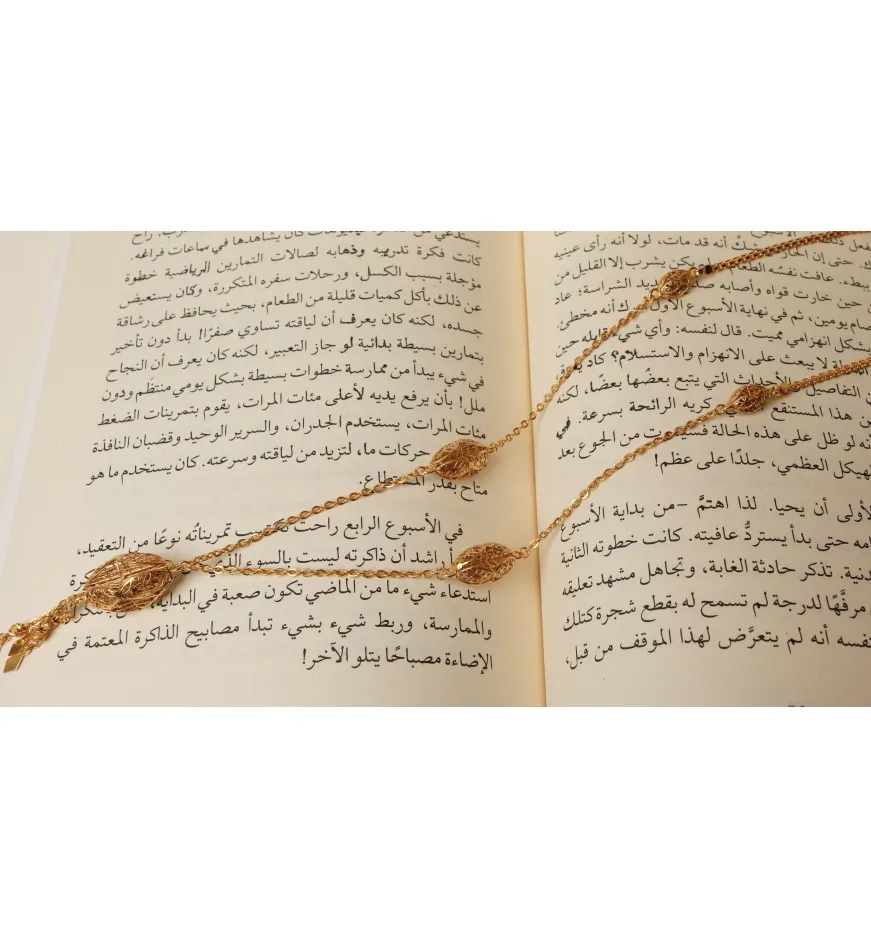 الأسبوع
فعل ذلك
شكّ أنه قد مات، لولا أنه رأى عينيه
ببطء. عافت نفسُه الطعام
يكن يشرب إلا القليل من
حين خارت قواه وأصابه
الشراسة؛ عاد
صام يومين، ثم في نهاية الأسبوع الأول
أنه مخطئ
بشكل انهزامي مميت. قال لنفسه: وأي شيء قابله حين
لا يبعث على الانهزام والاستسلام؟ كاد
التفاصيل
الأحداث التي يتبع بعضُها بعضًا، لكنه
من هذا المستنقع
كريه الرائحة بسرعة. في
أنه لو ظل على هذه الحالة فسيموت من الجوع بعد
الهيكل العظمي، جلدًا على عظم!
الأولى أن يحيا. لذا اهتمَّ –من بداية الأسبوع
حتى بدأ يستردُّ عافيته. كانت خطوته الثانية
تذكر حادثة الغابة، وتجاهل مشهد تعليقه
مرفَّهًا لدرجة لم تسمح له بقطع شجرة كتلك
نفسه أنه لم يتعرَّض لهذا الموقف من قبل،
يستدعي من
كان يشاهدها في ساعات فراغه.
كانت فكرة تدريبه وذهابه لصالات التمارين الرياضية خطوة
مؤجلة بسبب الكسل، ورحلات سفره المتكررة، وكان يستعيض
عن ذلك بأكل كميات قليلة من الطعام، بحيث يحافظ على رشاقة
جسده، لكنه كان يعرف أن لياقته تساوي صفرًا! بدأ دون تأخير
بتمارين بسيطة بدائية لو جاز التعبير، لكنه كان يعرف أن النجاح
في شيء يبدأ من ممارسة خطوات بسيطة بشكل يومي منتظَم ودون
ملل! بأن يرفع يديه لأعلى مئات المرات، يقوم بتمرينات الضغط
مئات المرات، يستخدم الجدران، والسرير الوحيد وقضبان النافذة
حركات ما، لتزيد من لياقته وسرعته. كان يستخدم ما هو
متاح بقدر المستطاع.
في الأسبوع الرابع راحت تكتسب تمريناتُه نوعًا من التعقيد،
اشد أن ذاكرته ليست بالسوء الذي
استدعاء شيء ما من الماضي تكون صعبة في البداية،
والممارسة، وربط شيء بشيء تبدأ مصابيح الذاكرة المعتمة في
الإضاءة مصباحًا يتلو الآخر!